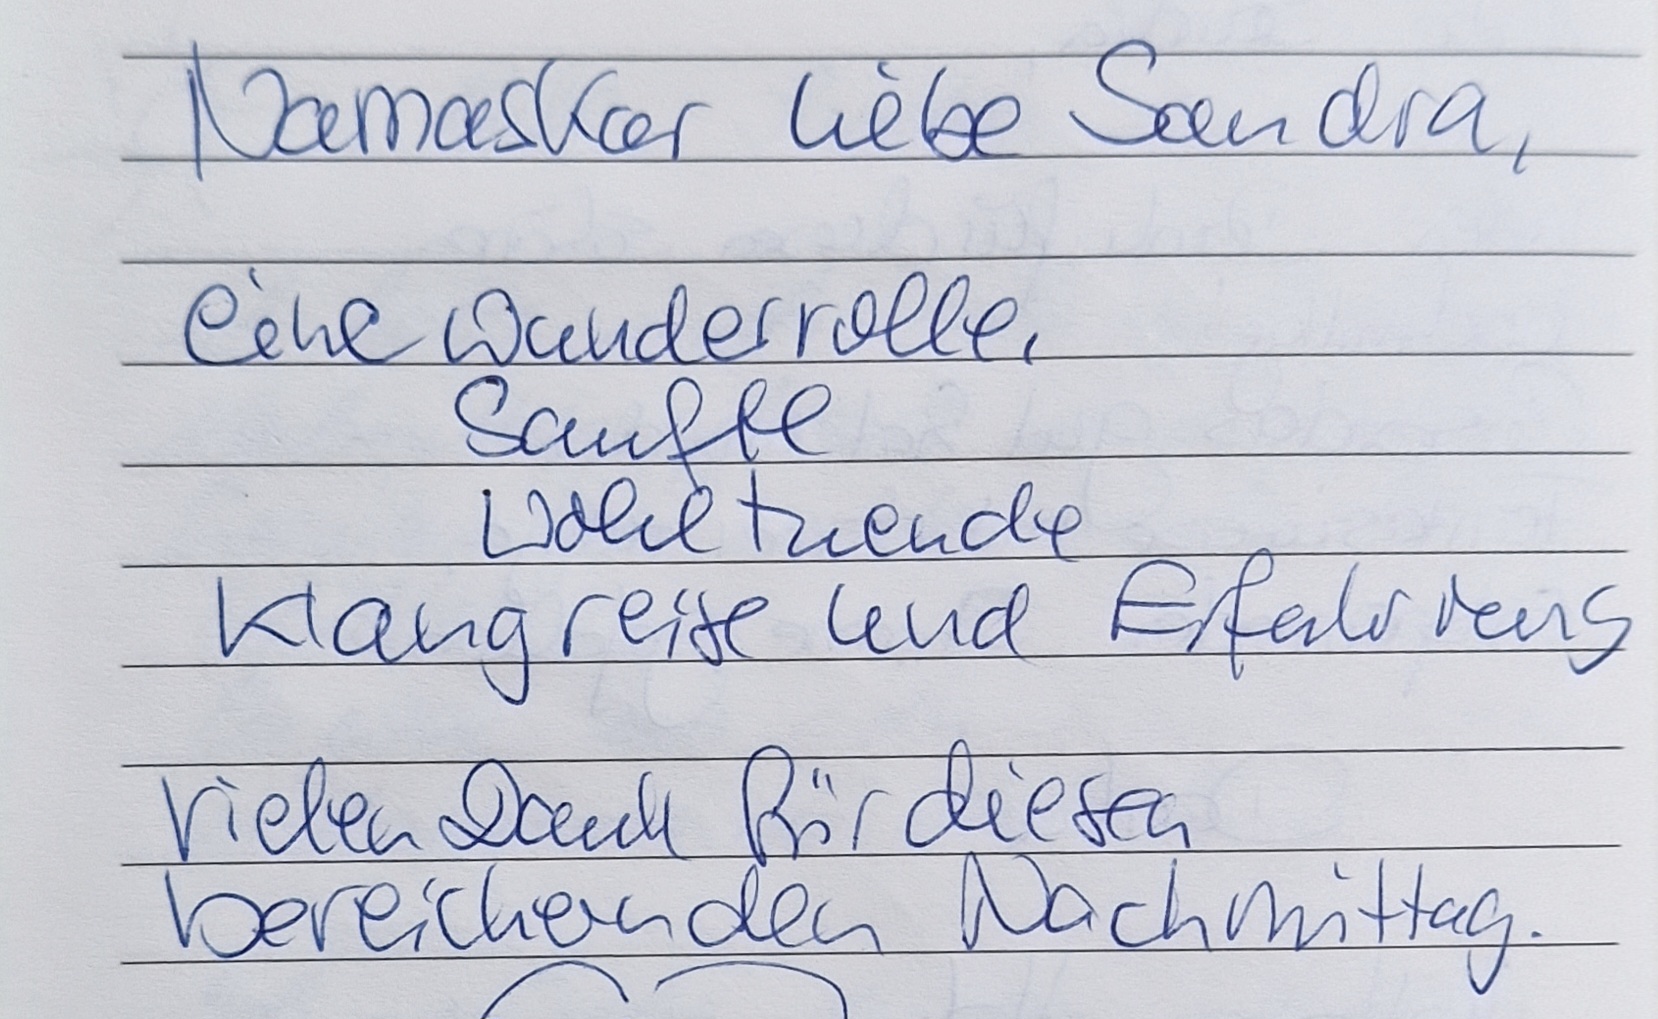 Namaskar liebe Sandra,
eine wunderrolle,
Sanfte
Wohltuende
Klangreise und Erfahrung
Vielen Dank für diesen
bereichernden Nachmittag.